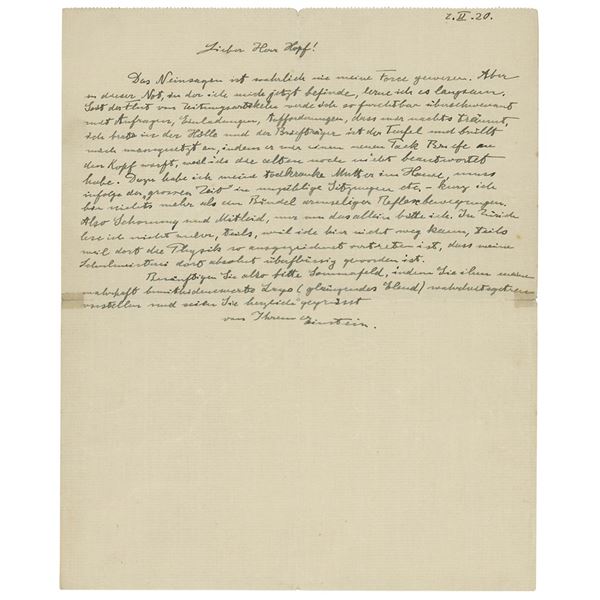 2. II. 20.
Lieber Herr Hopf!
Das Neinsagen ist wahrlich nie meine Force gewesen. Aber
in dieser Not, in der ich mich jetzt befinde, lerne ich es langsam.
Seit der Flut von Zeitungsartikeln wurde ich so furchtbar überschwemmt
mit Anfragen, Einladungen, Aufforderungen, dass mir nachts träumt,
ich brate in der Hölle und der Briefträger ist der Teufel und brüllt
mich unausgesetzt an, indem er mir einen neuen Pack Briefe an
den Kopf wirft, weil ich die alten noch nicht beantwortet
habe. Dazu habe ich meine todkranke Mutter im Hause, muss
infolge der „grossen Zeit" in unzählige Sitzungen etc. – kurz ich
bin nichts mehr als ein Bündel armseliger Reflexbewegungen.
Also Schonung und Mitleid, nur um das allein bitte ich. In Zürich
lese ich nicht mehr, teils, weil ich hier nicht weg kann, teils
weil dort die Physik so ausgezeichnet vertreten ist, dass meine
Schulmeisterei dort absolut überflüssig geworden ist.
Besänftigen Sie also bitte Sommerfeld, indem Sie ihm meine
wahrhaft bemitleidenswerte Lage (glänzendes Elend) wahrheitsgetreu
vorstellen und seien Sie herzlich gegrüsst
von Ihrem
Einstein.